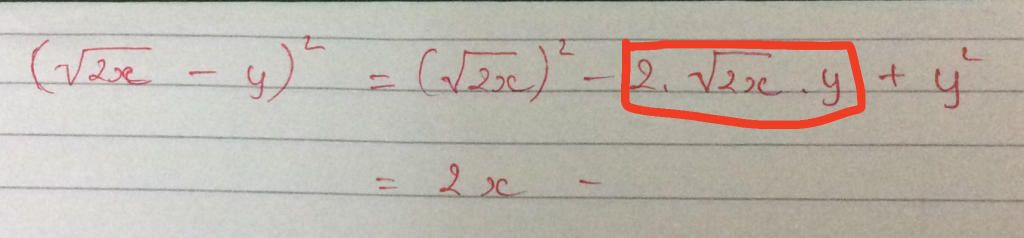 (√2x - y)² = (√2x)² - 2.√2x.y + y²
= 2x -